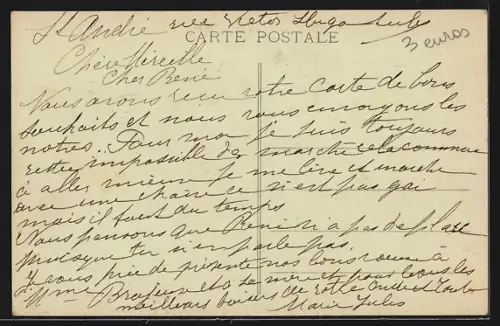 St André rue Victor Hugo Jules
CARTE POSTALE
3 euros
Chère Mireille
Cher René
Nous avons reçu votre carte de bons
souhaits et nous vous envoyons les
notres. Pour moi je suis toujours
impossible de marché
à aller mieux je me lève et marche
avec une chaire ce n'est pas gai
mais il faut du temps
Nous pensons que René n'a pas de place
puisque tu n'en parle pas.
Je vous prie de présenté nos bons
Mme et pour tous les
meilleurs baisers de votre
Marie Jules